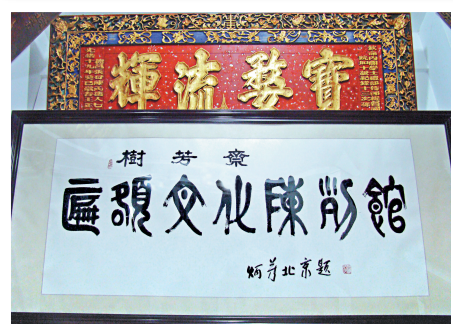 寶婺流輝
樹芳齋
匾額文化陳列館
炳芳北京題